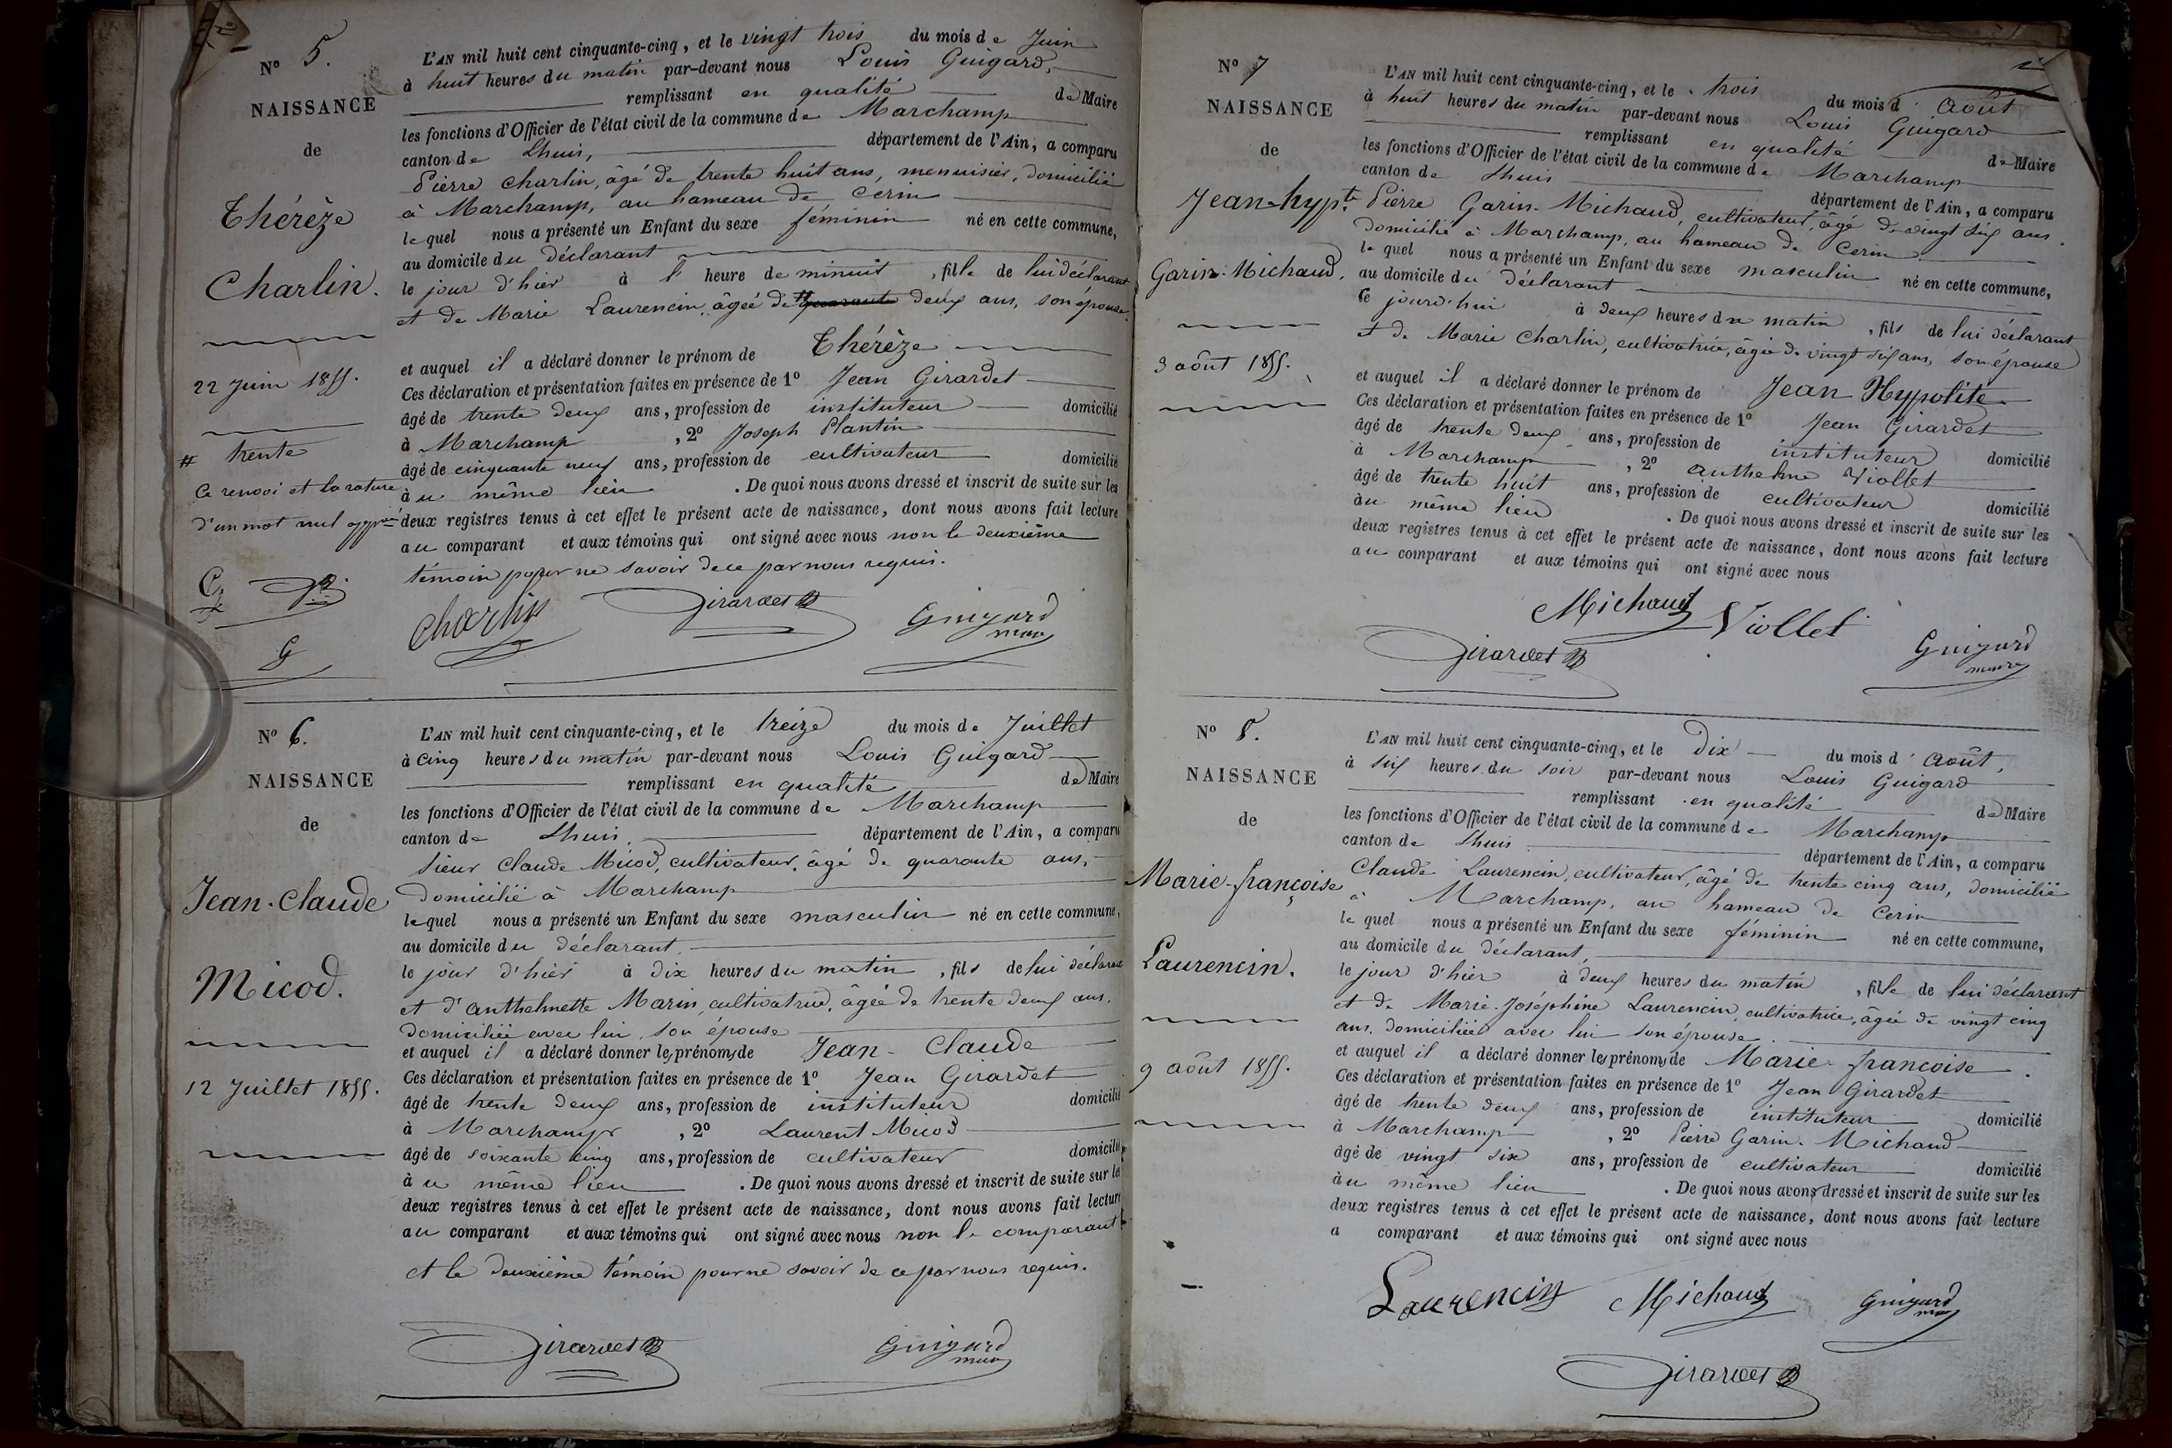 N° 5.
NAISSANCE
de
Thérèze
Charlin.
22 Juin 1855.
# trente
Ce renvoi et la rature
d'un mot nul
C. G.
G
L'AN mil huit cent cinquante-cinq, et le vingt trois du mois de Juin
à huit heures du matin par-devant nous Louis Guigard,
remplissant en qualité de Maire
les fonctions d'Officier de l'état civil de la commune de Marchamp
canton de Lhuis, département de l'Ain, a comparu
Pierre Charlin, âgé de trente huit ans, menuisier, domicilié
à Marchamp, au hameau de Cerin
lequel nous a présenté un Enfant du sexe féminin né en cette commune,
au domicile du déclarant
le jour d'hier à l' heure de minuit, fille de lui déclarant
et de Marie Laurencin, âgée de # quarante deux ans, son épouse.
et auquel il a déclaré donner le prénom de Thérèze
Ces déclaration et présentation faites en présence de 1° Jean Girardet
âgé de trente deux ans, profession de instituteur domicilié
à Marchamp, 2° Joseph Plantin
âgé de cinquante neuf ans, profession de cultivateur domicilié
au même lieu. De quoi nous avons dressé et inscrit de suite sur les
deux registres tenus à cet effet le présent acte de naissance, dont nous avons fait lecture
au comparant et aux témoins qui ont signé avec nous non le deuxième
témoin pour ne savoir de ce par nous requis.
Charlin Girardet Guigard
maire
N° 6.
NAISSANCE
de
Jean-Claude
Micod.
12 Juillet 1855.
L'AN mil huit cent cinquante-cinq, et le treize du mois de Juillet
à cinq heures du matin par-devant nous Louis Guigard
remplissant en qualité de Maire
les fonctions d'Officier de l'état civil de la commune de Marchamp
canton de Lhuis, département de l'Ain, a comparu
sieur Claude Micod, cultivateur, âgé de quarante ans,
domicilié à Marchamp
lequel nous a présenté un Enfant du sexe masculin né en cette commune,
au domicile du déclarant
le jour d'hier à dix heures du matin, fils de lui déclarant
et d'anthelmette Marin, cultivatrice, âgée de trente deux ans,
domiciliée avec lui, son épouse
et auquel il a déclaré donner les prénoms de Jean-Claude
Ces déclaration et présentation faites en présence de 1° Jean Girardet
âgé de trente deux ans, profession de instituteur domicilié
à Marchamp, 2° Laurent Micod
âgé de soixante cinq ans, profession de cultivateur domicilié
au même lieu. De quoi nous avons dressé et inscrit de suite sur les
deux registres tenus à cet effet le présent acte de naissance, dont nous avons fait lecture
au comparant et aux témoins qui ont signé avec nous non le comparant
et le deuxième témoin pour ne savoir de ce par nous requis.
Girardet Guigard
maire
N° 7
NAISSANCE
de
Jean-hypte
Garin-Michaud.
3 août 1855.
L'AN mil huit cent cinquante-cinq, et le trois du mois d'août
à huit heures du matin par-devant nous Louis Guigard
remplissant en qualité de Maire
les fonctions d'Officier de l'état civil de la commune de Marchamp
canton de Lhuis département de l'Ain, a comparu
Pierre Garin-Michaud, cultivateur, âgé de vingt six ans.
domicilié à Marchamp, au hameau de Cerin
lequel nous a présenté un Enfant du sexe masculin né en cette commune,
au domicile du déclarant
ce jourd'hui à deux heures du matin, fils de lui déclarant
et de Marie Charlin, cultivatrice, âgée de vingt six ans, son épouse
et auquel il a déclaré donner le prénom de Jean Hypolite
Ces déclaration et présentation faites en présence de 1° Jean Girardet
âgé de trente deux ans, profession de instituteur domicilié
à Marchamp, 2° anthelme Viollet
âgé de trente huit ans, profession de cultivateur domicilié
au même lieu. De quoi nous avons dressé et inscrit de suite sur les
deux registres tenus à cet effet le présent acte de naissance, dont nous avons fait lecture
au comparant et aux témoins qui ont signé avec nous
Michaud Viollet
Girardet Guigard
maire
N° 8.
NAISSANCE
de
Marie-françoise
Laurencin.
9 août 1855.
L'AN mil huit cent cinquante-cinq, et le Dix du mois d'août,
à six heures du soir par-devant nous Louis Guigard
remplissant en qualité de Maire
les fonctions d'Officier de l'état civil de la commune de Marchamp
canton de Lhuis département de l'Ain, a comparu
Claude Laurencin, cultivateur, âgé de trente cinq ans, domicilié
à Marchamp, au hameau de Cerin
lequel nous a présenté un Enfant du sexe féminin né en cette commune,
au domicile du déclarant
le jour d'hier à deux heures du matin, fille de lui déclarant
et de Marie-Joséphine Laurencin, cultivatrice, âgée de vingt cinq
ans, domiciliée avec lui son épouse
et auquel il a déclaré donner les prénoms de Marie-francoise.
Ces déclaration et présentation faites en présence de 1° Jean Girardet
âgé de trente deux ans, profession de instituteur domicilié
à Marchamp, 2° Pierre Garin-Michaud
âgé de vingt six ans, profession de cultivateur domicilié
au même lieu. De quoi nous avons dressé et inscrit de suite sur les
deux registres tenus à cet effet le présent acte de naissance, dont nous avons fait lecture
a comparant et aux témoins qui ont signé avec nous
Laurencin Michaud Guigard
maire
Girardet